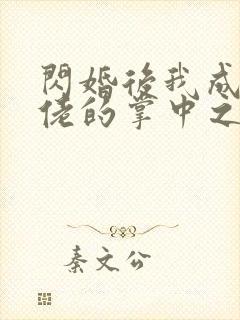 閃婚後我成
佬的掌中之
秦文公